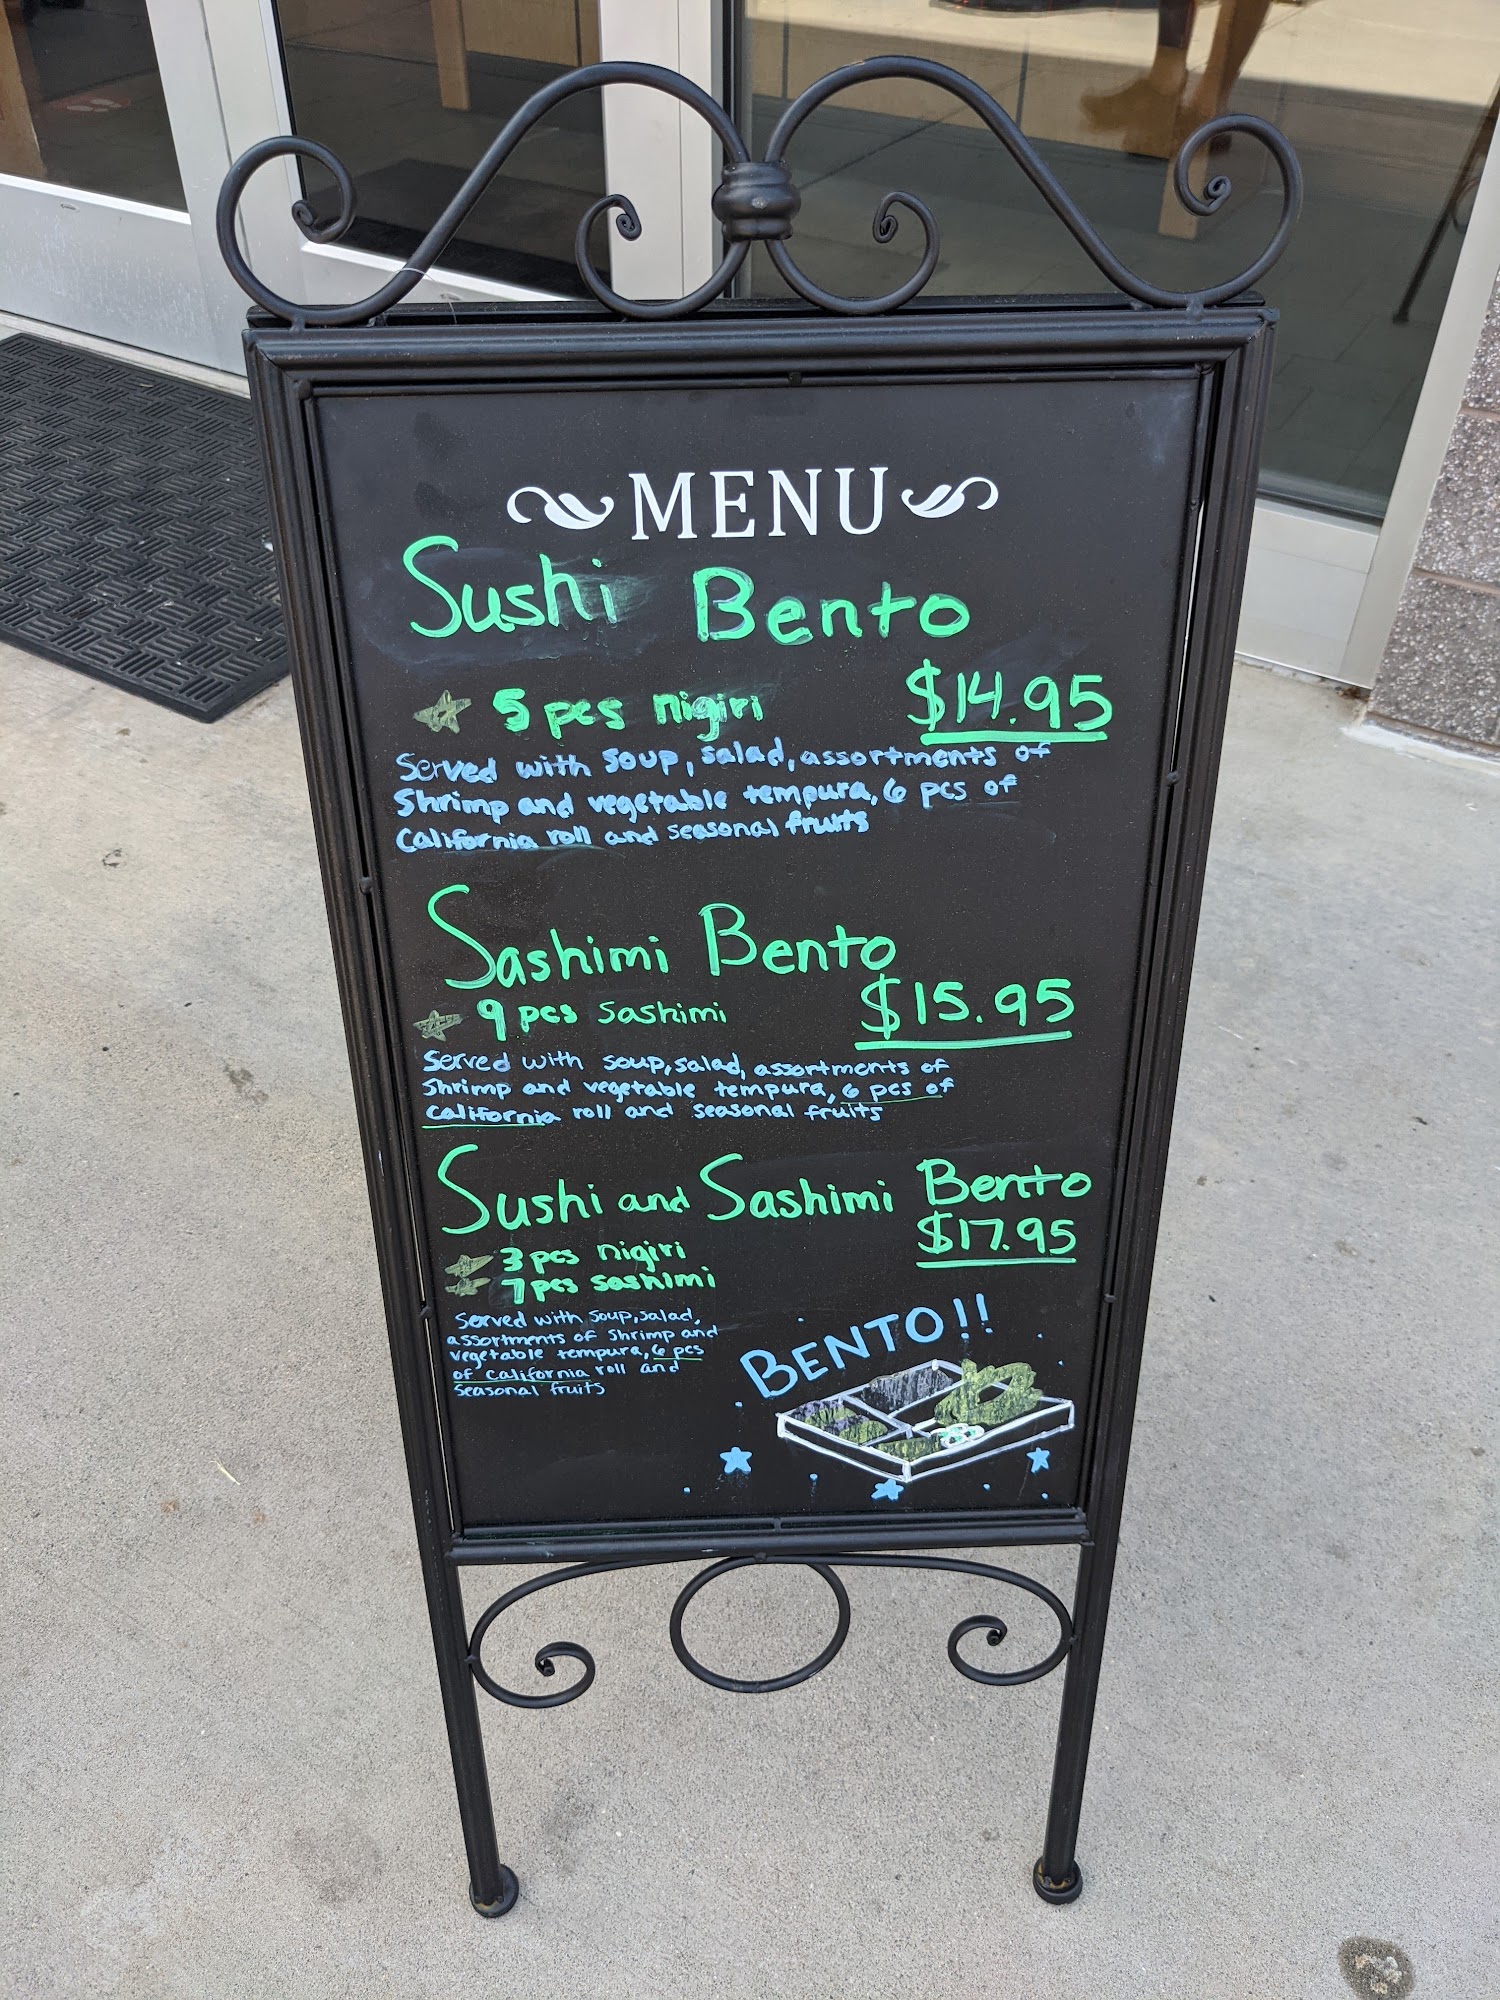 MENU
Sushi Bento
5 pcs nigiri $14.95
Served with soup, salad, assortments of
Shrimp and vegetable tempura, 6 pcs of
California roll and seasonal fruits
Sashimi Bento
9 pcs sashimi $15.95
Served with soup, salad, assortments of
Shrimp and vegetable tempura, 6 pcs of
California roll and seasonal fruits
Sushi and Sashimi Bento
$17.95
3 pcs nigiri
7 pcs sashimi
Served with soup, salad,
assortments of shrimp and
vegetable tempura, 6 pcs
of California roll and
seasonal fruits
BENTO!!